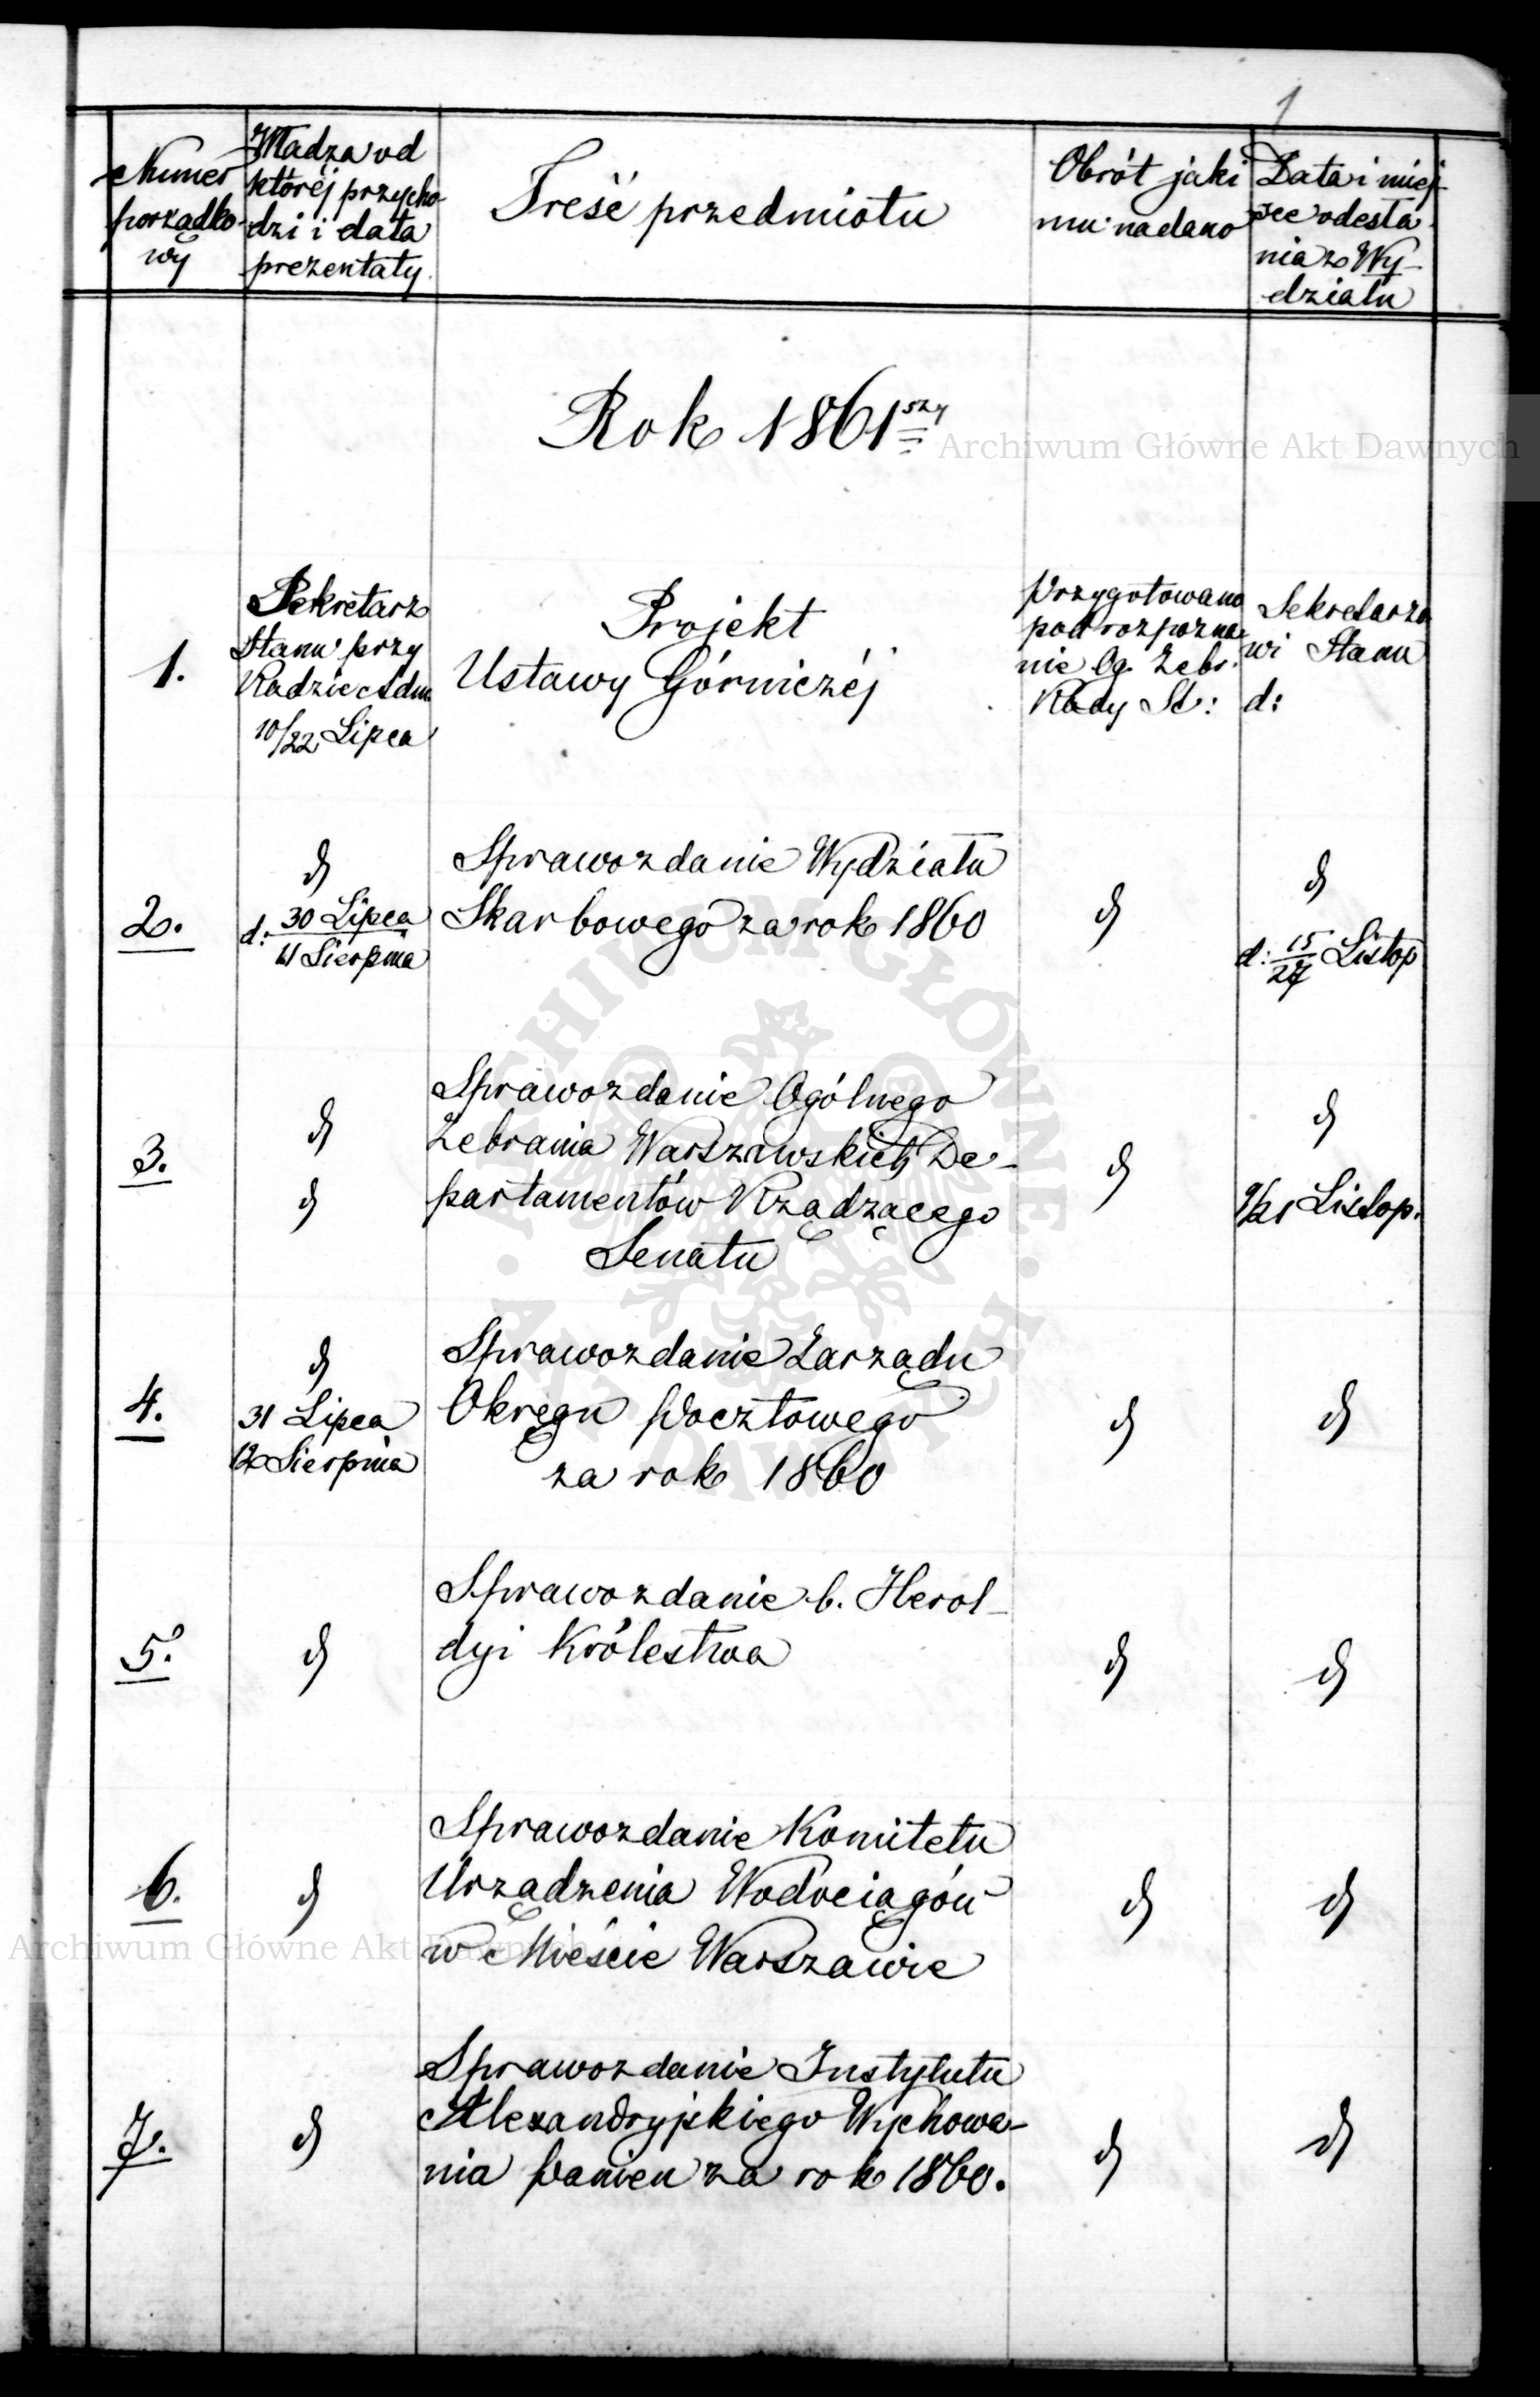 1
Numer
porządko-
wy
Władza od
której przycho-
dzi i data
prezentaty.
Treść przedmiotu
Obrót jaki
mu nadano
Data i miej-
sce odesła-
nia z Wy-
działu
Rok 1861szy
Archiwum Główne Akt Dawnych
1.
Sekretarz
Stanu przy
Radzie Adm.
10/22 Lipca
Projekt
Ustawy Górniczéj
Przygotowano
pod rozpozna-
nie Og. Zebr.
Rady St:
Sekretarzo
wi Stanu
d:
2.
d
d: 30 Lipca
11 Sierpnia
Sprawozdanie Wydziału
Skarbowego za rok 1860
d
d
d: 15/27 Listop
3.
d
d
Sprawozdanie Ogólnego
Zebrania Warszawskich De-
partamentów Rządzącego
Senatu
d
d
9/21 Listop.
4.
d
31 Lipca
12 Sierpnia
Sprawozdanie Zarządu
Okręgu Pocztowego
za rok 1860
d
d
5.
d
Sprawozdanie b. Herol-
dyi Królestwa
d
d
6.
d
Sprawozdanie Komitetu
Urządzenia Wodociągów
w Mieście Warszawie
d
d
Archiwum Główne Akt Dawnych
7.
d
Sprawozdanie Instytutu
Alexandryjskiego Wychowa-
nia Panien za rok 1860.
d
d
ARCHIWUM GŁÓWNE
AKT DAWNYCH